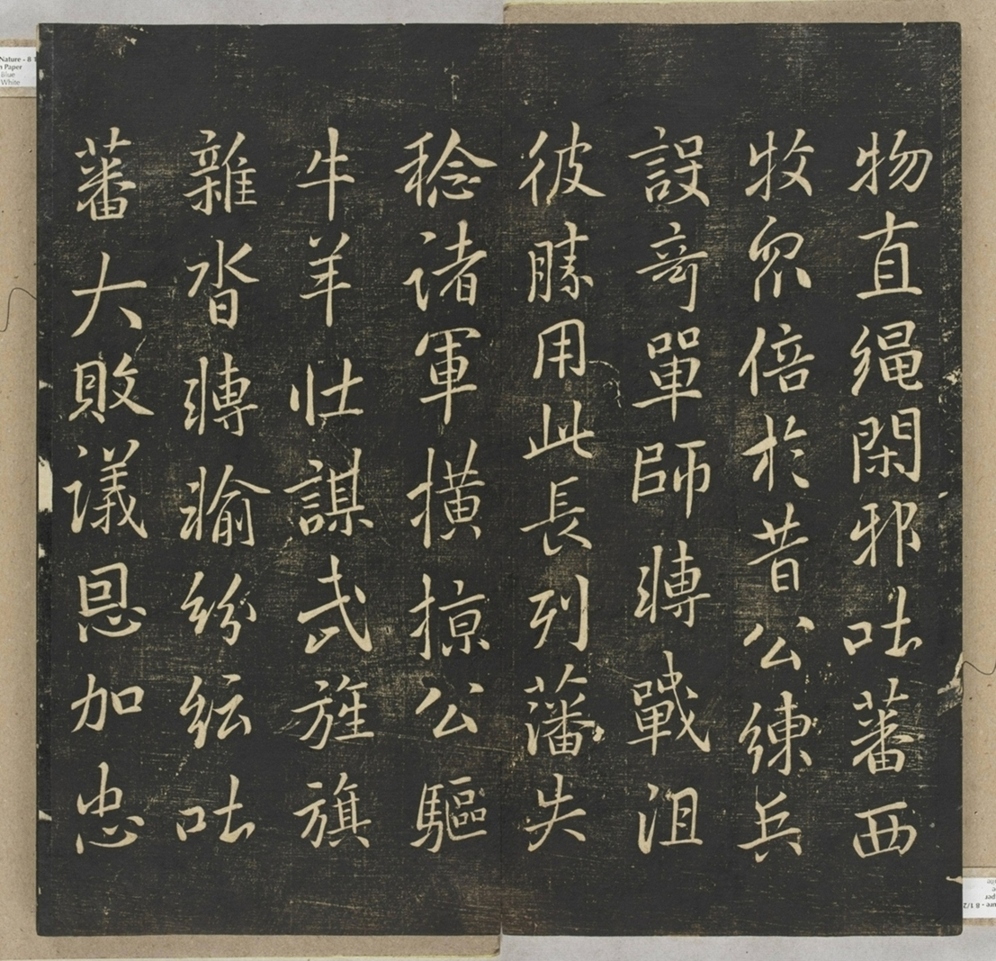 物直繩閑邪吐蕃西
牧眾倍於昔公練兵
設奇單師轉戰沮
彼勝用此長列藩失
稔諸軍橫掠公驅
牛羊壯謀武旌旗
雜沓轉輸紛紜吐
蕃大敗議恩加忠
Nature - 8 1
Paper
Blue
White